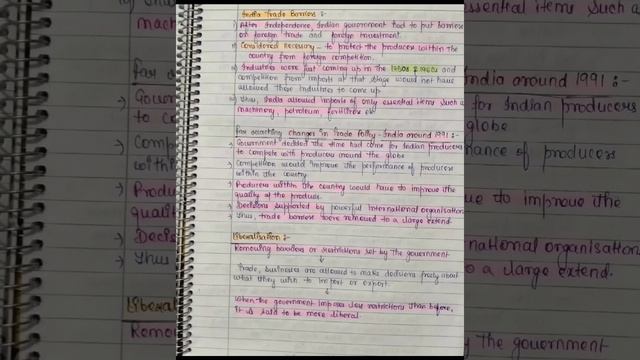 India Trade Barriers :-
i) After Independence, Indian government had to put barriers
on foreign trade and foreign investment.
ii) Considered necessary - to protect the producer within the
country from foreign competition.
iii) Industries were just coming up in the 1950s & 1960s and
competition from imports at that stage would not have
allowed these industries to come up.
iv) Thus, India allowed imports of only essential items such as
machinery, petroleum, fertilizers etc
Far reaching changes in Trade Policy - India around 1991 :-
Government decided the time had come for Indian producers
to compete with producers around the globe
Competition would improve the performance of producers
within the country
Producers within the country would have to improve the
quality of the product.
Decisions supported by powerful international organisation
Thus, trade barriers were removed to a large extend.
Liberalisation :-
Removing barriers or restrictions set by the government
↓
Trade, businesses are allowed to make decisions freely about
what they wish to import or export.
↓
When the government imposes less restrictions than before,
It is said to be more liberal.